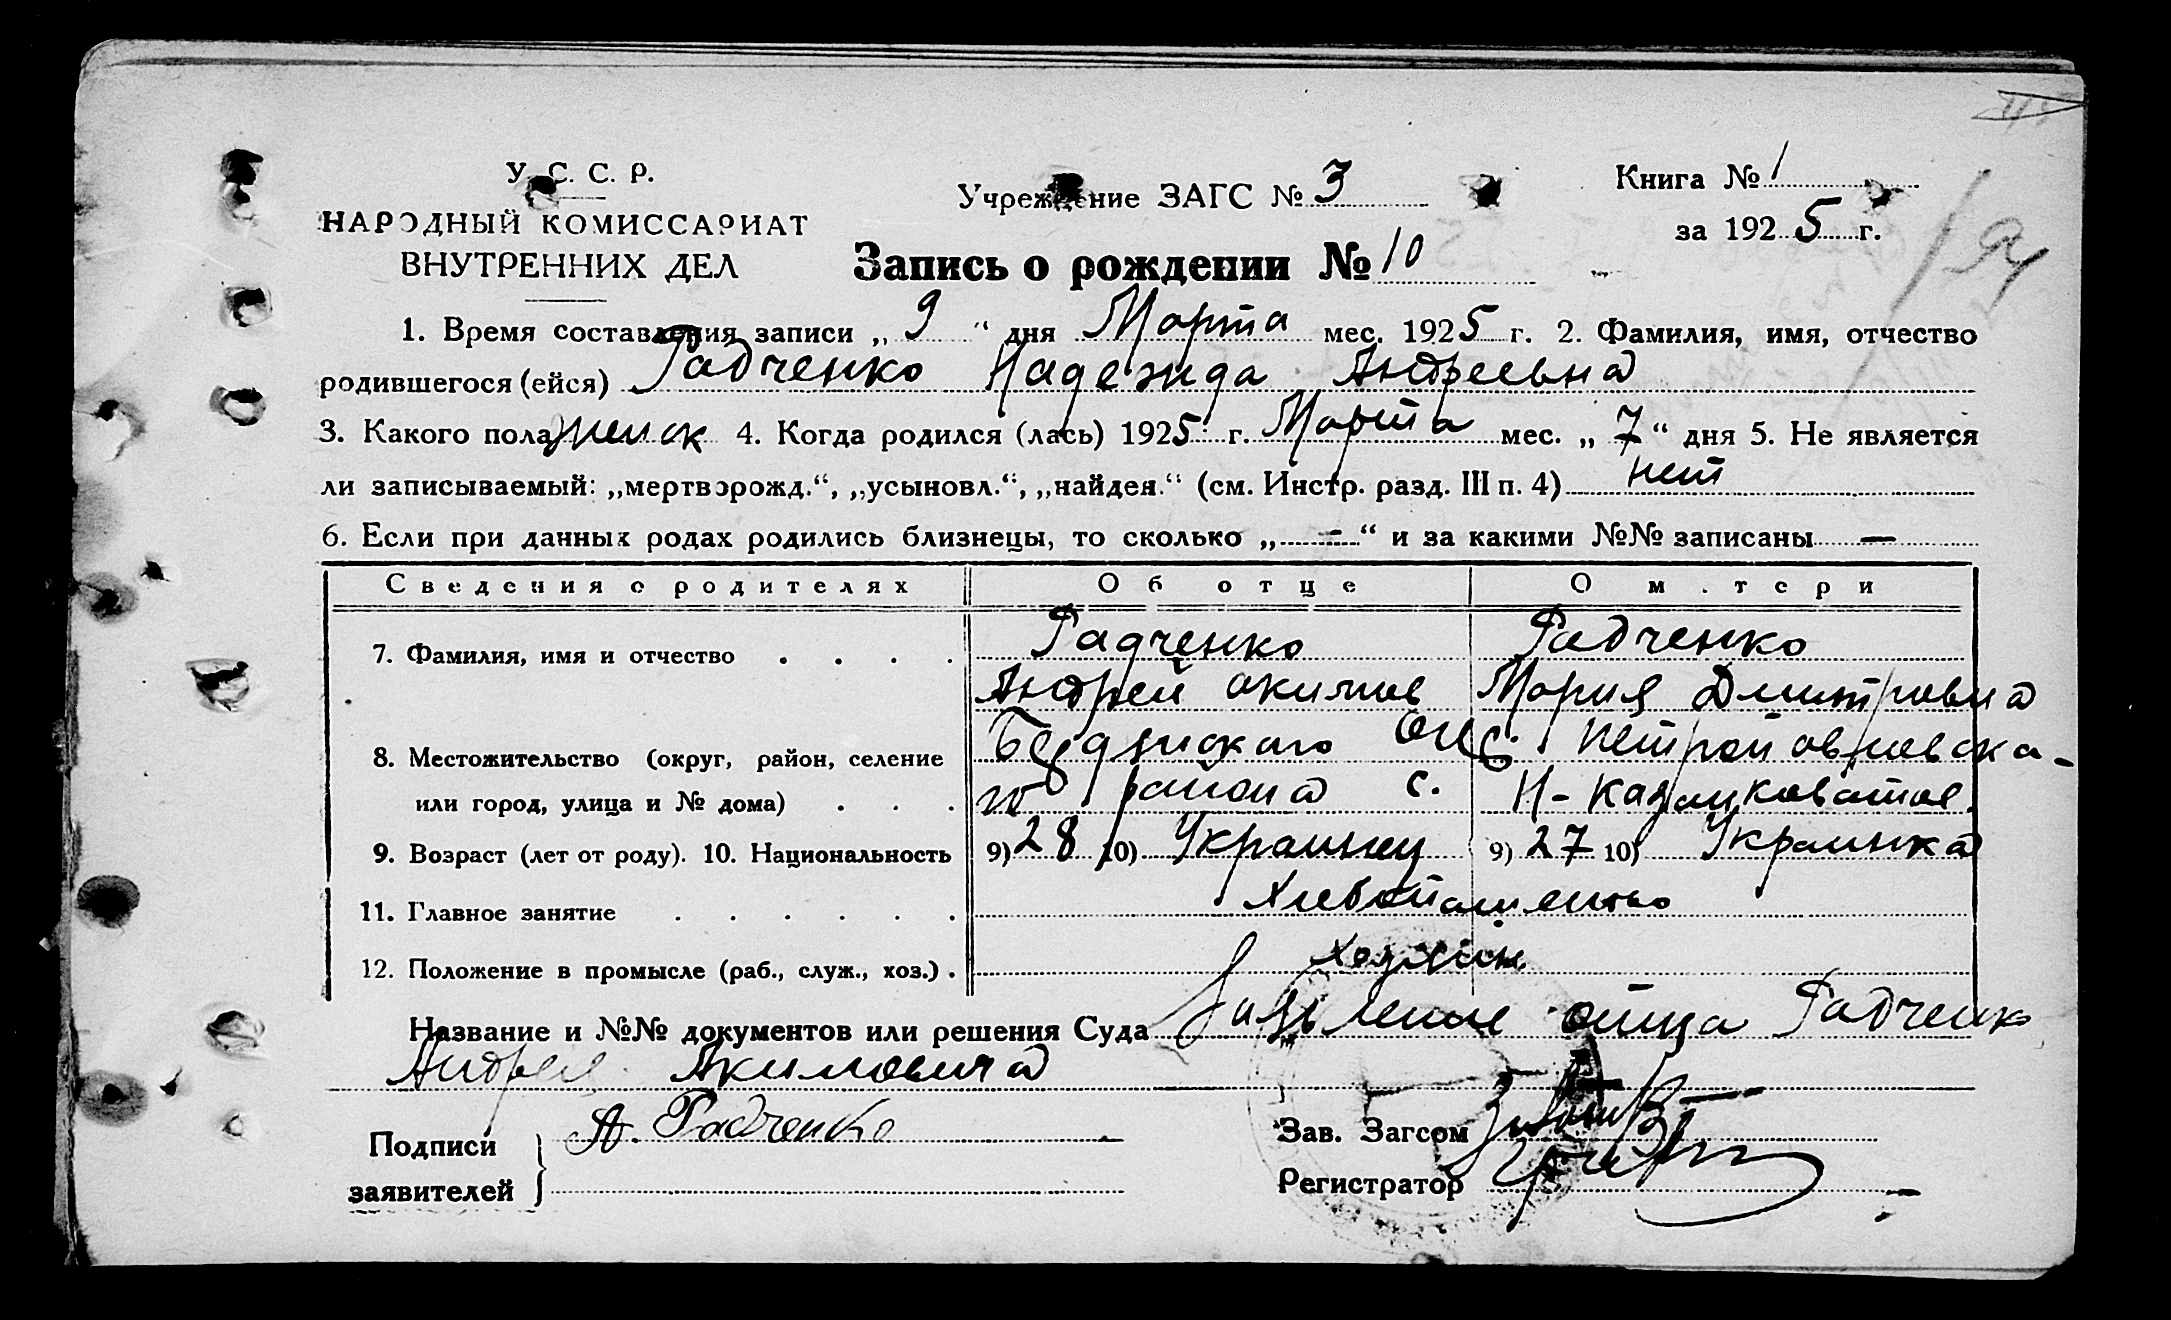 У. С. С. Р.
НАРОДНЫЙ КОМИССАРИАТ
ВНУТРЕННИХ ДЕЛ
Учреждение ЗАГС № 3
Книга № 1
за 1925 г.
Запись о рождении № 10
1. Время составления записи „ 9 “ дня Марта мес. 1925 г. 2. Фамилия, имя, отчество
родившегося (ейся) Радченко Надежда Андреевна
3. Какого пола женск 4. Когда родился (лась) 1925 г. Марта мес. „ 7 “ дня 5. Не является
ли записываемый: „мертворожд.“, „усыновл.“, „найден.“ (см. Инстр. разд. III п. 4) нет
6. Если при данных родах родились близнецы, то сколько „ – “ и за какими №№ записаны —
Сведения о родителях Об отце О м.тери
7. Фамилия, имя и отчество . . . . Радченко Радченко
Андрей Акимов Мария Дмитровна
8. Местожительство (округ, район, селение
или город, улица и № дома) . . . района с.
9. Возраст (лет от роду). 10. Национальность 9) 28 10) Украинец 9) 27 10) Украинка
11. Главное занятие . . . . . . Хлебопашество
12. Положение в промысле (раб., служ., хоз.) . Хозяин
Название и №№ документов или решения Суда Заявление отца Радченко
Андрея Акимовича
Подписи
заявителей
А. Радченко
Зав. Загсом
Регистратор